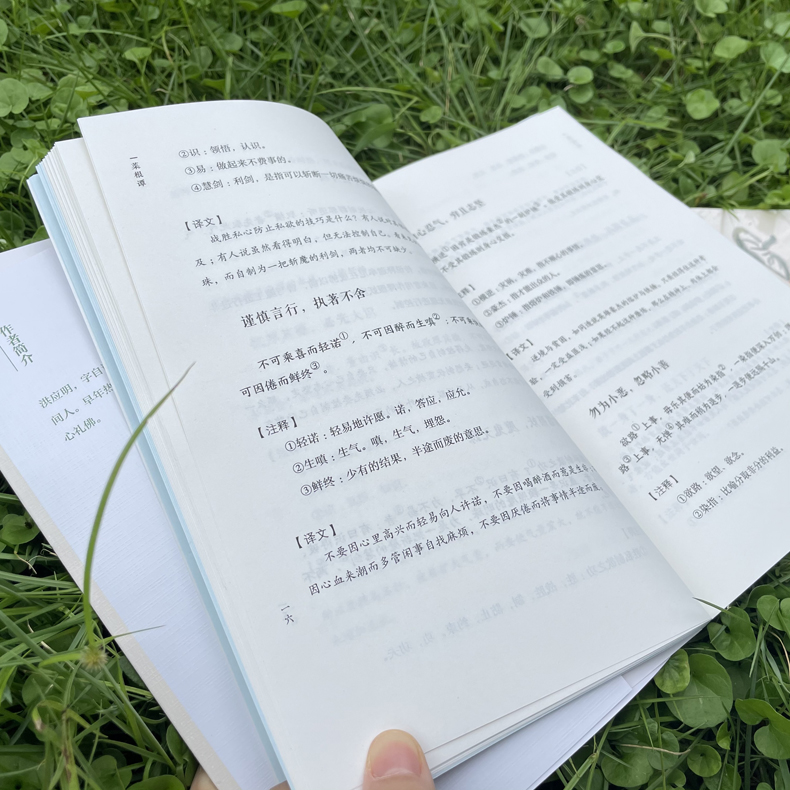 菜根谭
②识：领悟，认识。
③易：做起来不费事的。
④慧剑：利剑，是指可以斩断一切
【译文】
战胜私心防止私欲的技巧是什么？有人说
及；有人说虽然看得明白，但无法控制自己。
珠，而自制为一把斩魔的利剑，两者均不可缺少
谨慎言行，执著不舍
不可乘喜而轻诺①，不可因醉而生嗔②；不可
可因倦而鲜终③。
【注释】
①轻诺：轻易地许愿。诺，答应，应允。
②生嗔：生气。嗔，生气，埋怨。
③鲜终：少有的结果，半途而废的意思。
【译文】
不要因心里高兴而轻易向人许诺，不要因喝醉酒而恶意生
因心血来潮而多管闲事自找麻烦，不要因厌倦而将事情半途而废
一六
【注释】
【译文】
勿为小恶，忽略小善
欲路①上事，毋乐其便而姑为染指②，一染指便深入万仞；
路③上事，无惮其难而稍为退步，一退步便远隔千山。
【注释】
①欲路：欲望，欲念。
②染指：比喻分取非分的利益。
作者简介
洪应明，字自
间人。早年热
心礼佛。